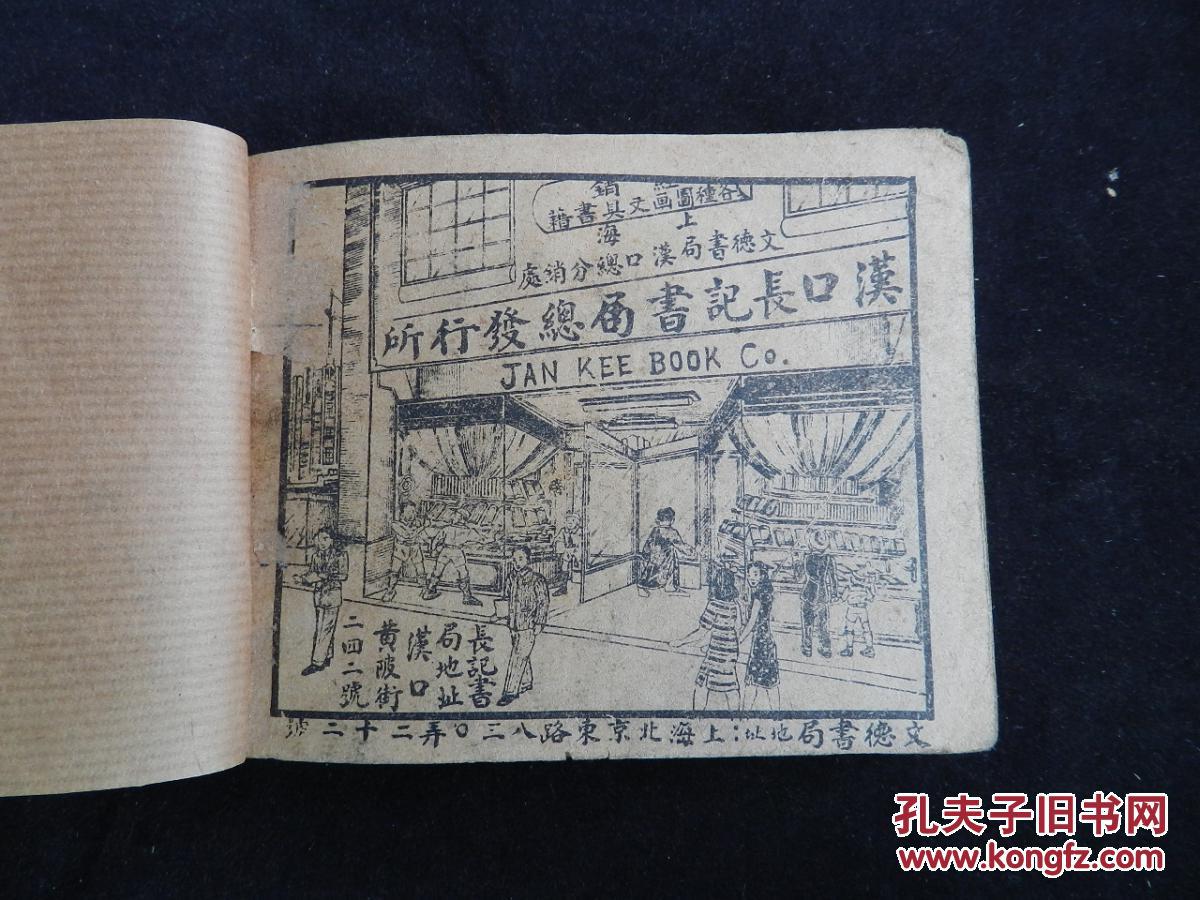 各種圖画文具書籍
上海
文德書局漢口總分銷處
漢口長記書局總發行所
JAN KEE BOOK Co.
長記書
局地址
漢口
黃陂街
二四二號
文德書局地址:上海北京東路八三〇弄二十二號
孔夫子旧书网
www.kongfz.com